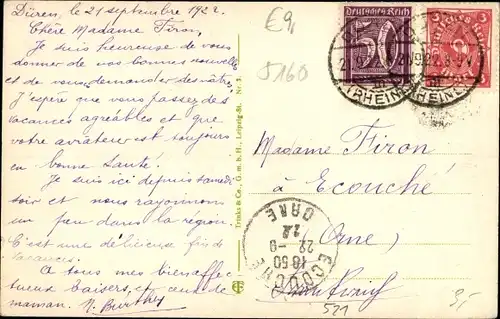 Düren, le 21 septembre 1922.
Chère Madame Firon,
Je suis heureuse de vous
donner de nos bonnes nouvelles
et de vous demander des vôtres.
J'espère que vous passez des
vacances agréables et que
votre aviateur est toujours
en bonne santé.
Je suis ici depuis samedi
soir et nous rayonnons
un peu dans la région
C'est une délicieuse fin de
vacances.
A tous mes bien affec-
tueux baisers, et ceux de
maman.
Trinks & Co., G.m.b.H., Leipzig-St. Nr. 3.
€9
5160
Deutsches Reich
50
3
(RHEINL
(RHEINL
Madame Firon
à Ecouché
(Orne)
ECOUCHÉ
GARE
16 50
22-9
22
521
3,-